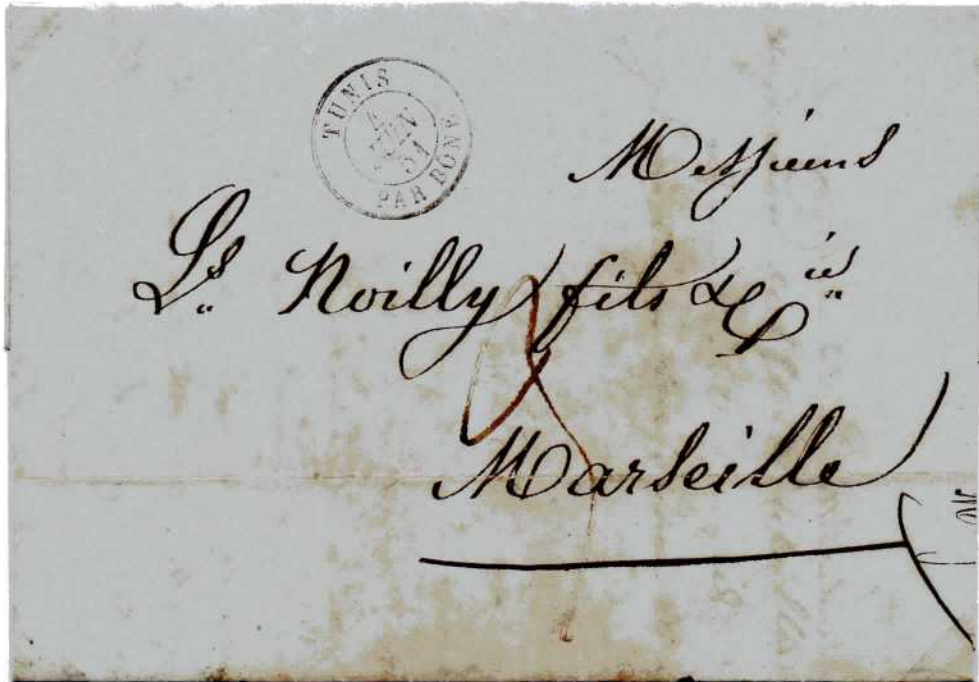 TUNIS
4
JUIN
51
PAR BONE
Messieurs
Ls Noilly fils & Cie
Marseille